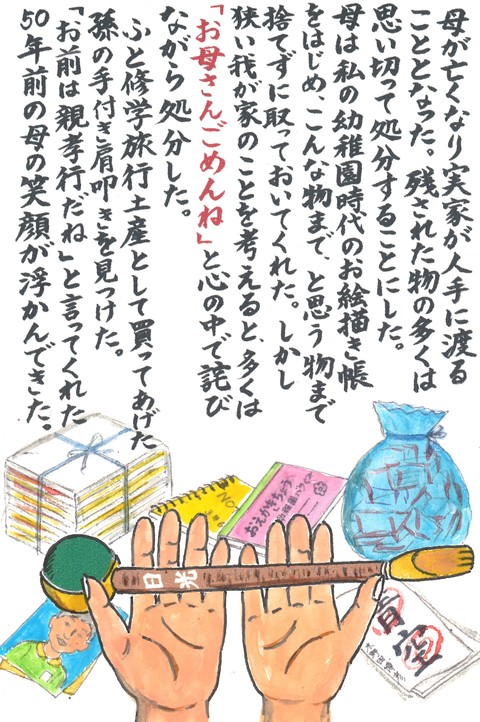 母が亡くなり実家が人手に渡る
こととなった。残された物の多くは
思い切って処分することにした。
母は私の幼稚園時代のお絵描き帳
をはじめ、こんな物まで、と思う物まで
捨てずに取っておいてくれた。しかし
狭い我が家のことを考えると、多くは
「お母さんごめんね」と心の中で詫び
ながら処分した。
ふと修学旅行土産として買ってあげた
孫の手付き肩叩きを見つけた。
「お前は親孝行だね」と言ってくれた
50年前の母の笑顔が浮かんできた。
NO
おえかきちょう
日光
青空